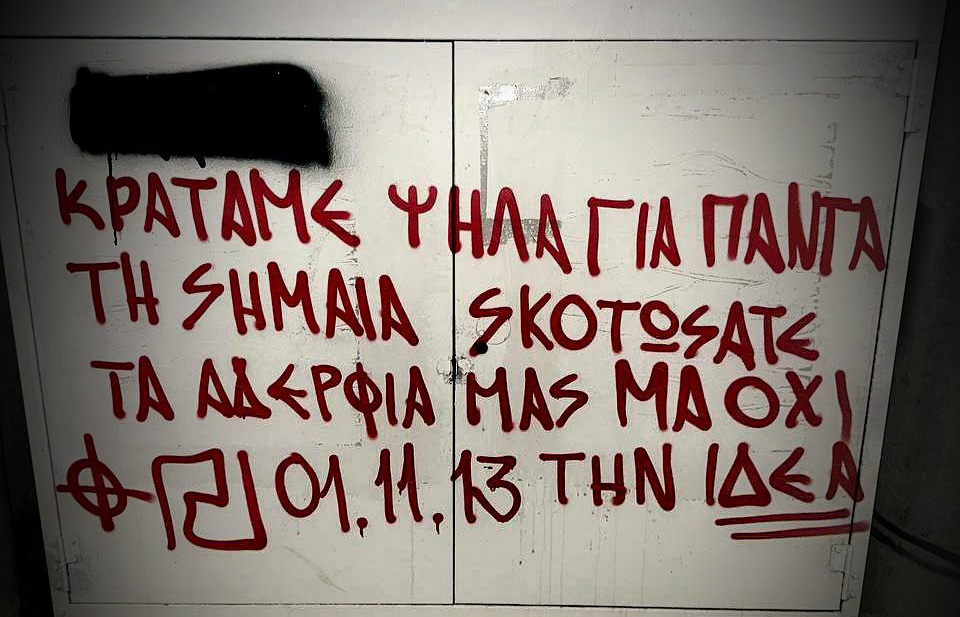 ΚΡΑΤΑΜΕ ΨΗΛΑ ΓΙΑ ΠΑΝΤΑ
ΤΗ SΗΜΑΙΑ SΚΟΤΩSΑΤΕ
ΤΑ ΑΔΕΡΦΙΑ ΜΑS ΜΑ ΟΧΙ
01.11.13 ΤΗΝ ΙΔΕΑ